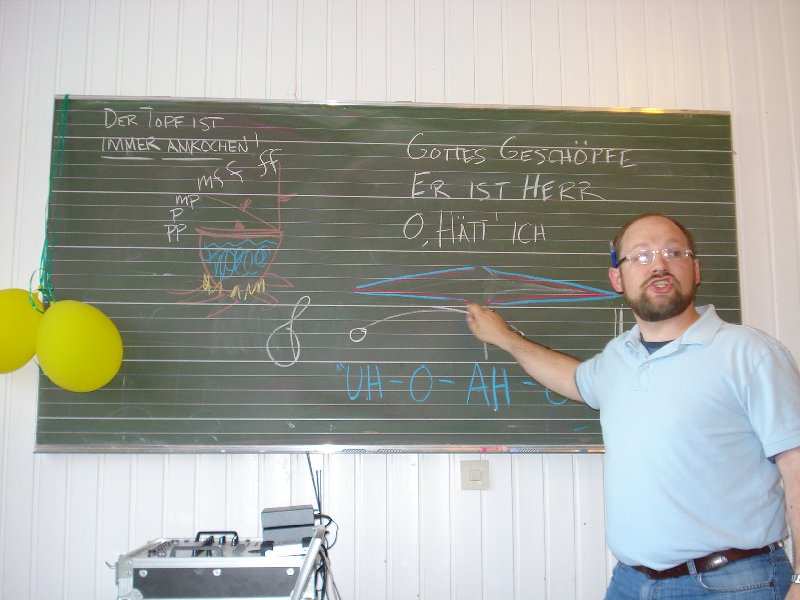 DER TOPF IST
IMMER ANKOCHEN!
mf f ff
mp
p
pp
GOTTES GESCHÖPFE
ER IST HERR
O, HÄTT' ICH
"UH-O-AH-